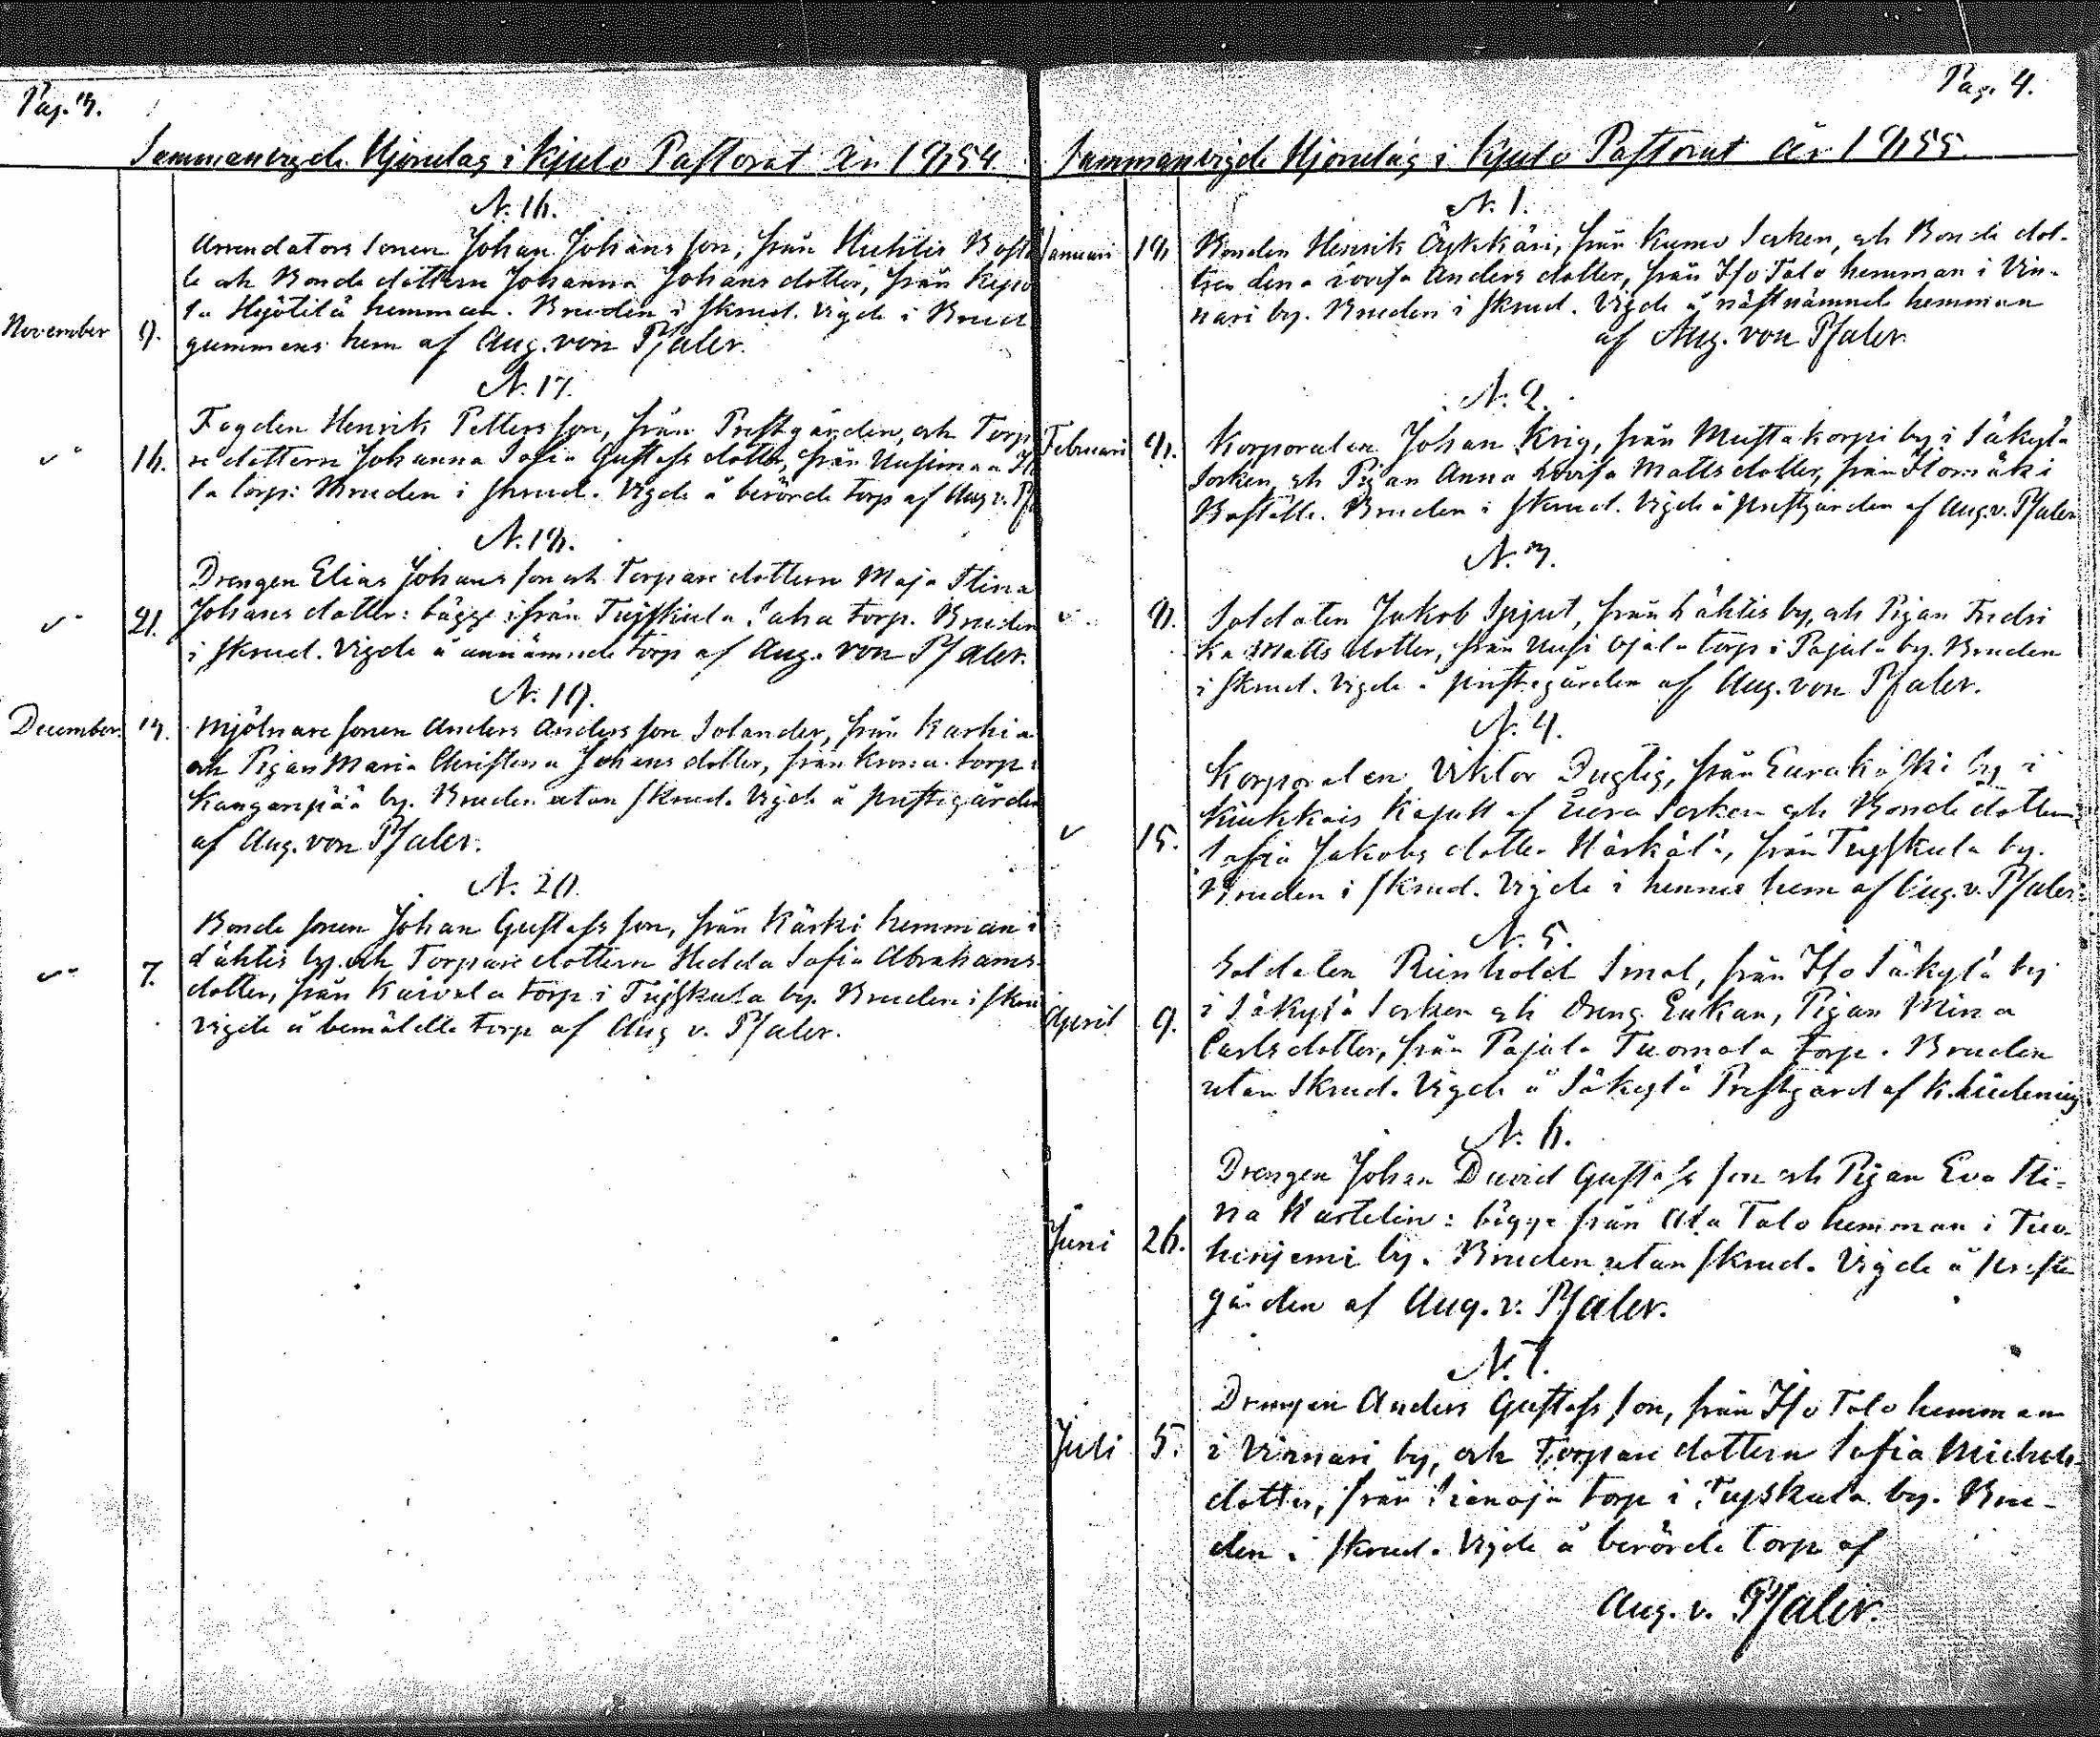 Pag. 3.
Sammanvigde Hjonelag i Kjulo Pastorat år 1854.
N. 16.
Arrendators sonen Johan Johans son, från Huhtis Bostä
le och Bonde dottren Johanna Johans dotter, från Kepo
la Hejötilä hemman. Bruden i skrud. Vigde i Brud
November 9. gummens hem af Aug. von Pfaler.
N. 17.
Fogden Henrik Petters son, från Prestgården, och Torpa
v 16. re dottern Johanna Sofia Gustafs dotter, från Uusimaa
la torp. Bruden i skrud. Vigde å berörde torp af Aug. v. Pf
N. 18.
Drengen Elias Johans son och Torpare dottern Maja Stina
v 21. Johans dotter: bägge ifrån Tujskula Saha torp. Bruden
i skrud. Vigde å ennämnde torp af Aug. von Pfaler.
N. 19.
December 3. Mjölnare sonen Anders Anders son Solander, från Karhia
och Pigan Maria Christina Johans dotter, från Krona torp i
Kanganpää by. Bruden utan skrud. Vigde å prestegården
af Aug. von Pfaler.
N. 20.
Bonde sonen Johan Gustafs son, från Kärki hemman i
Lähtis by. och Torpare dottern Hedda Sofia Abrahams
v 7. dotter, från Kaivola torp i Tujskula by. Bruden i skru
Vigde å bemälde torp af Aug v. Pfaler.
Pag. 4.
Sammanvigde Hjonelag i Kjulo Pastorat år 1855.
N. 1.
Januari 18 Bonden Henrik Äykkäri, från Kumo Socken, och Bonde dot-
tren Lena Lovisa Anders dotter, från Iso Talo hemman i Vin-
nari by. Bruden i skrud. Vigde å näst nämnde hemman
af Aug. von Pfaler.
N. 2.
Februari 8. Korporalen Johan Krig, från Mustakorpi by i Säkylä
Socken, och Pigan Anna Lovisa Matts dotter, från Ilomäki
Boställe. Bruden i skrud. Vigde å prestgården af Aug. v. Pfaler
N. 3.
v 8. Soldaten Jakob Spjut, från Lähtis by, och Pigan Fredri
ka Matts dotter, från Uusi Ojala torp i Pajula by. Bruden
i skrud. Vigde å prestegården af Aug. von Pfaler.
N. 4.
Korporalen Viktor Dugtig, från Eurakoski by i
Kiukkais Kapell af Eura Socken och Bonde dottern
v 15. Sofia Jakobs dotter Härkälä, från Tujskula by.
Bruden i skrud. Vigde i hennes hem af Aug. v. Pfaler.
N. 5.
Soldaten Reinhold Smal, från Iso Säkylä by
April 9. i Säkylä Socken och Dreng Enkan, Pigan Mina
Carls dotter, från Pajula Tuomola torp. Bruden
utan Skrud. Vigde å Säkylä Prestgård af K.
N. 6.
Drengen Johan David Gustafs son och Pigan Eva Sti-
Juni 26. na Kastelin: bägge från Ala Talo hemman i Tuo-
henjemi by. Bruden utan skrud. Vigde å preste
gården af Aug. v. Pfaler.
N. 7.
Drengen Anders Gustafs son, från Iso Talo hemman
Juli 5. i Vinnari by, och Torpare dottern Sofia Michels
dotter, från Sianoja torp i Tujskula by. Bru-
den i skrud. Vigde å berörde torp af
Aug. v. Pfaler.